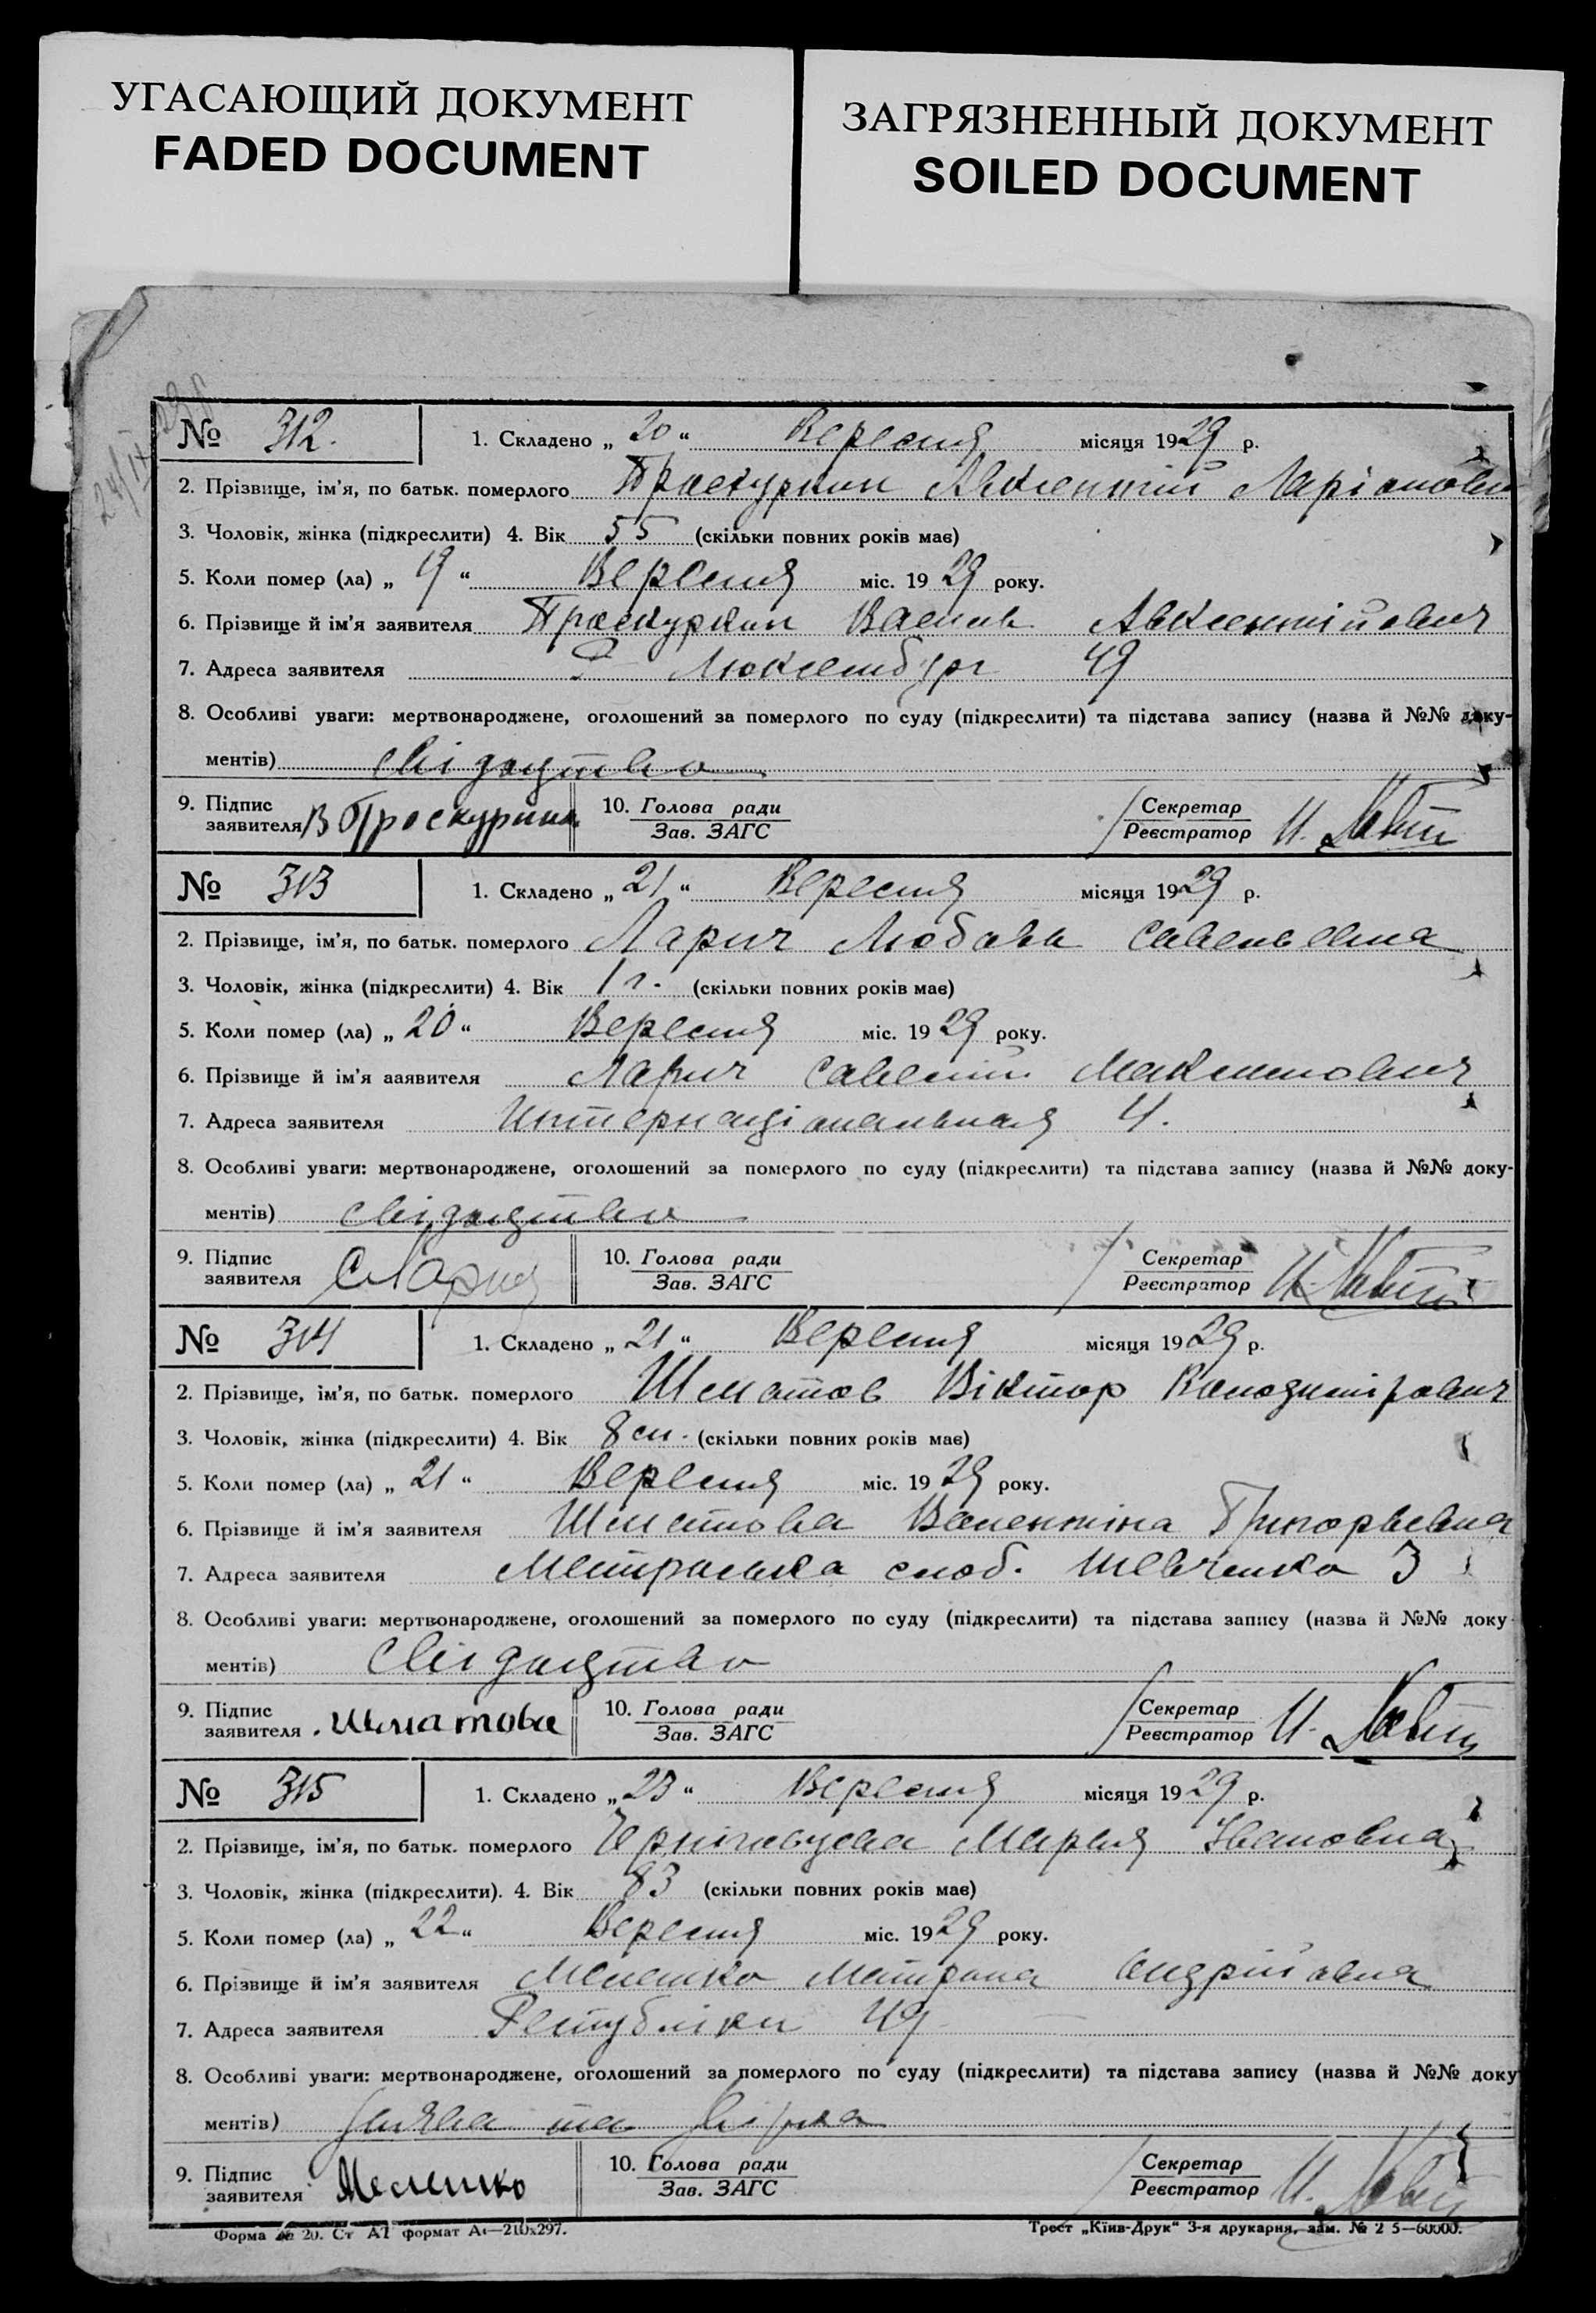 УГАСАЮЩИЙ ДОКУМЕНТ
FADED DOCUMENT
ЗАГРЯЗНЕННЫЙ ДОКУМЕНТ
SOILED DOCUMENT
№ 312. 1. Складено „ 20 “ Вересня місяця 1929 р.
2. Прізвище, ім’я, по батьк. померлого Проскурнин Авксентий Ларіонови
3. Чоловік, жінка (підкреслити) 4. Вік 55 (скільки повних років має)
5. Коли помер (ла) „ 19 “ Вересня міс. 1929 року.
6. Прізвище й ім’я заявителя Проскурнин Василь Авксентійович
7. Адреса заявителя Р Люксембург 49
8. Особливі уваги: мертвонароджене, оголошений за померлого по суду (підкреслити) та підстава запису (назва й №№ доку-
ментів) свідоцтво
9. Підпис заявителя В Проскурнин 10. Голова ради Зав. ЗАГС Секретар Реєстратор И.
№ 313 1. Складено „ 21 “ Вересня місяця 1929 р.
2. Прізвище, ім’я, по батьк. померлого Ларич Любовь Савельевна
3. Чоловік, жінка (підкреслити) 4. Вік 1 г. (скільки повних років має)
5. Коли помер (ла) „ 20 “ Вересня міс. 1929 року.
6. Прізвище й ім’я ааявителя Ларич Савелий Максимович
7. Адреса заявителя Интернаціональная 4.
8. Особливі уваги: мертвонароджене, оголошений за померлого по суду (підкреслити) та підстава запису (назва й №№ доку-
ментів) свідоцтво
9. Підпис заявителя СЛарич 10. Голова ради Зав. ЗАГС Секретар Реєстратор И.
№ 314 1. Складено „ 21 “ Вересня місяця 1929 р.
2. Прізвище, ім’я, по батьк. померлого Шматов Віктор Володимірович
3. Чоловік, жінка (підкреслити) 4. Вік 8 м. (скільки повних років має)
5. Коли помер (ла) „ 21 “ Вересня міс. 1929 року.
6. Прізвище й ім’я заявителя Шматова Валентіна Григорьевна
7. Адреса заявителя слоб. Шевченка 3
8. Особливі уваги: мертвонароджене, оголошений за померлого по суду (підкреслити) та підстава запису (назва й №№ доку-
ментів) Свідоцтво
9. Підпис заявителя Шматова 10. Голова ради Зав. ЗАГС Секретар Реєстратор И.
№ 315 1. Складено „ 23 “ Вересня місяця 1929 р.
2. Прізвище, ім’я, по батьк. померлого Марья Івановна
3. Чоловік, жінка (підкреслити). 4. Вік 83 (скільки повних років має)
5. Коли помер (ла) „ 22 “ Вересня міс. 1929 року.
6. Прізвище й ім’я заявителя Мелешко Матрона Андрійовна
7. Адреса заявителя Републіки 49
8. Особливі уваги: мертвонароджене, оголошений за померлого по суду (підкреслити) та підстава запису (назва й №№ доку
ментів) заява та
9. Підпис заявителя Мелешко 10. Голова ради Зав. ЗАГС Секретар Реєстратор И.
Форма № 20. Ст А1 формат А4—210х297. Трест „Київ-Друк“ 3-я друкарня, зам. № 2 5—60000.